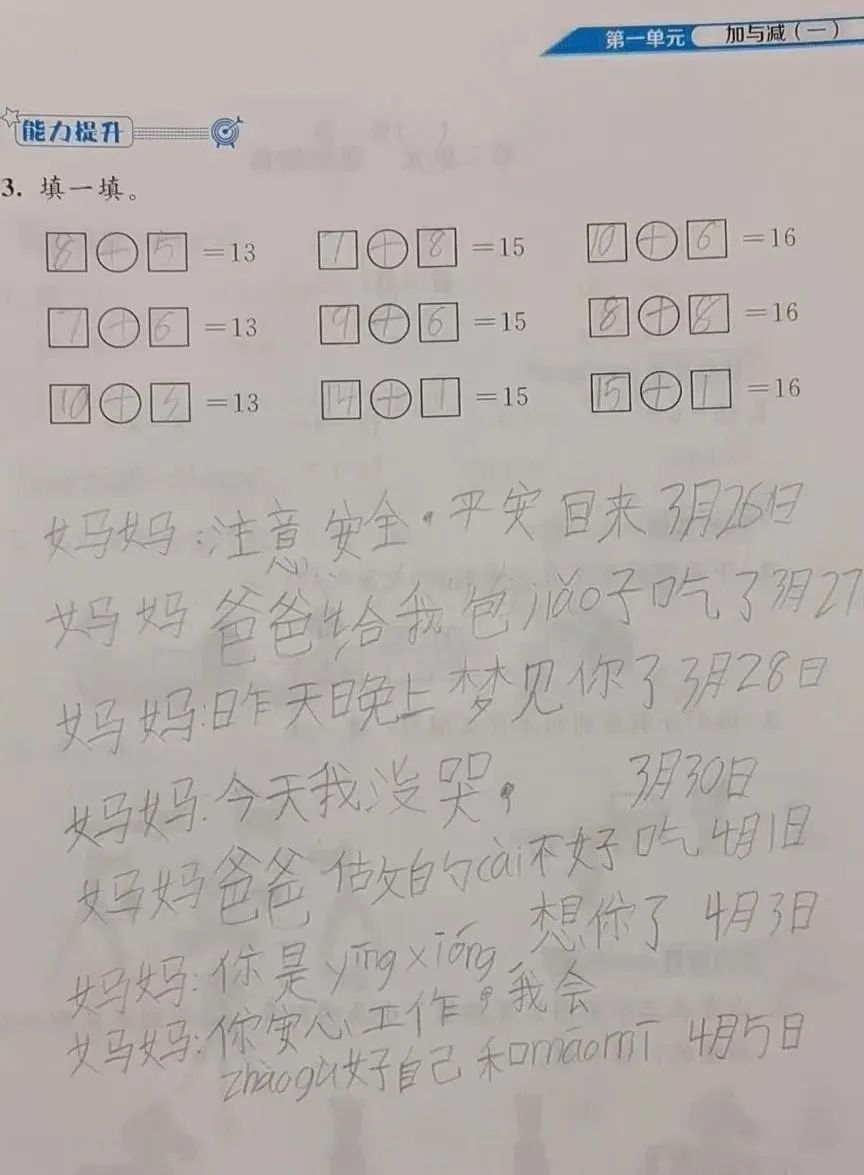 第一单元 加与减（一）
能力提升
3. 填一填。
8+5=13 7+8=15 10+6=16
7+6=13 9+6=15 8+8=16
10+3=13 14+1=15 15+1=16
妈妈:注意安全。平安回来 3月26日
妈妈 爸爸给我包jiǎo子吃了3月27
妈妈:昨天晚上梦见你了3月28日
妈妈:今天我没哭。 3月30日
妈妈爸爸 的cài不好吃 4月1日
妈妈:你是yīngxióng,想你了 4月3日
妈妈:你安心工作。我会
zhàogù好自己和māomī 4月5日